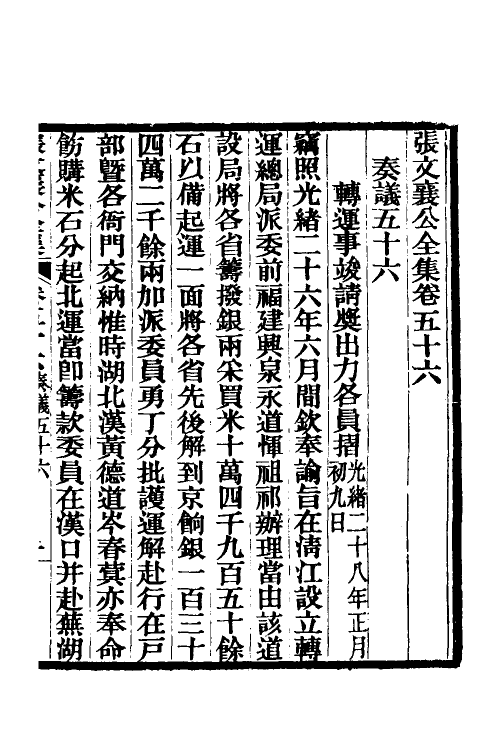 張文襄公全集卷五十六
奏議五十六
轉運事竣請奬出力各員摺光緒二十八年正月初九日
竊照光緒二十六年六月間欽奉諭旨在淸江設立轉
運總局派委前福建興泉永道惲祖祁辦理當由該道
設局將各省籌撥銀兩采買米十萬四千九百五十餘
石以備起運一面將各省先後解到京餉銀一百三十
四萬二千餘兩加派委員勇丁分批護運解赴行在戸
部曁各衙門交納惟時湖北漢黃德道岑春蓂亦奉命
飭購米石分起北運當卽籌款委員在漢口并赴蕪湖
奏議五十六 一